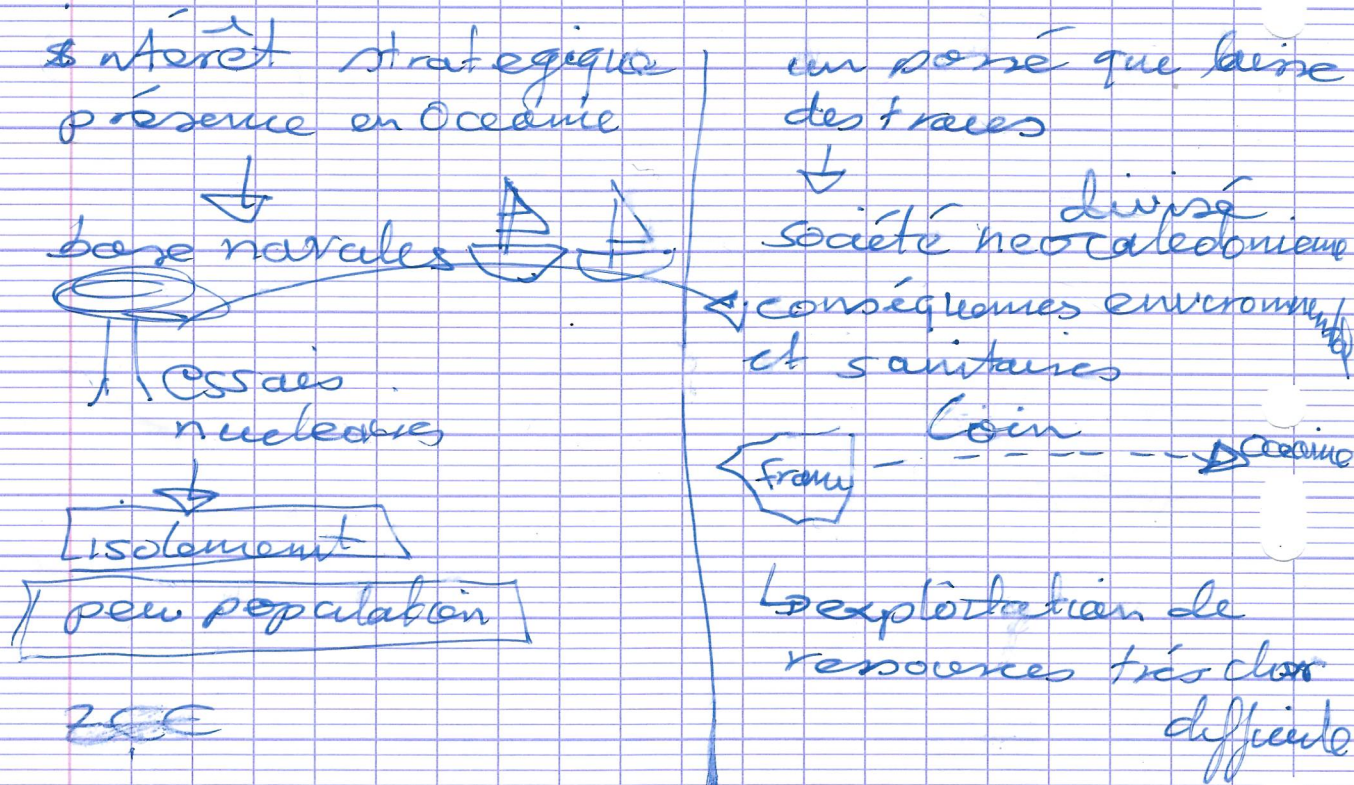 intérêt strategique
présence en Océanie
base navales
essais
nucleaires
isolement
peu population
ZEE
un passé que laisse
des traces
divisé
société neocaledonienne
conséquences environmental
et sanitaires
loin
france
Oceanie
exploitation de
ressources très
difficile